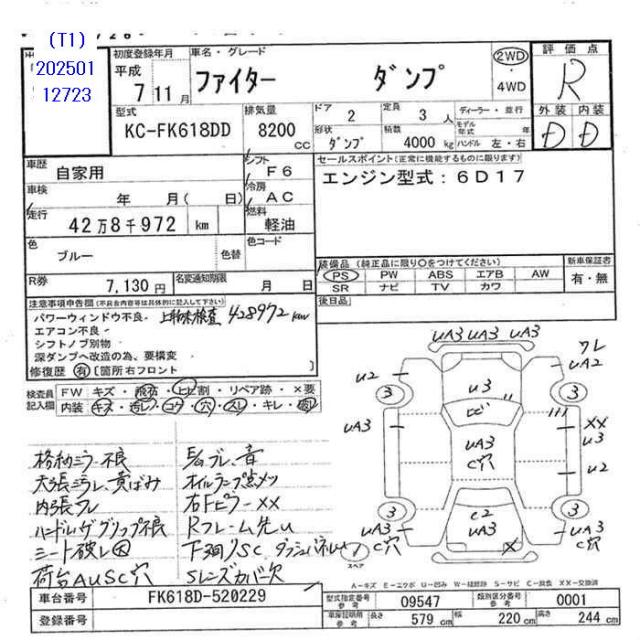 (T1)
202501
12723
初度登録年月
平成
7 11月
車名・グレード
ファイター ダンプ
2WD
・
4WD
評価点
R
型式
KC-FK618DD
排気量
8200
CC
ドア
2
定員
3 人
形状
ダンプ
積載
4000 kg
ディーラー・並行
モデル年式 年
ハンドル 左・右
外装 内装
D D
車歴
自家用
シフト
F6
セールスポイント(正常に機能するものに限ります)
エンジン型式:6D17
車検
年 月( 日)
冷房
AC
走行
42万8千972 km
燃料
軽油
色
ブルー
色替
色コード
装備品(純正品に限り○をつけてください)
PS PW ABS エアB AW
SR ナビ TV カワ
新車保証書
有・無
R券
7,130円
名変通知期限
月 日
後日品
注意事項申告欄(不具合内容等は具体的に記入して下さい)
パワーウィンドウ不良・上物未検査 428972km
エアコン不良・
シフトノブ別物
深ダンプへ改造の為、要構変
修復歴 有 [箇所右フロント
検査員記入欄
FW キズ・飛石・ヒビ割・リペア跡・×要
内装 キズ・汚レ・コゲ・穴・スレ・キレ・
格納ミラー不良
天張ミラレ、黄ばみ
内張フレ
シート破レ
荷台AUSC穴
オイルランプ点メツ
右Fピラー××
Rフレーム先U
SレンズカバーR欠
UA3 UA3 UA3
U2
U3
ヒビ
ワレ
UA2
3
3
UA3
UA3
C穴
××
U3
U2
3
3
C2
UA3
UA3
C穴
UA3
C穴
スペア
A-キズ E-エクボ U-凹み W-補修跡 S-サビ C-腐食 ××-交換済
車台番号
FK618D-520229
型式指定番号
参考
09547
類別区分番号
参考
0001
登録番号
車庫証明用
参考
長さ
579 cm
幅
220 cm
高さ
244 cm